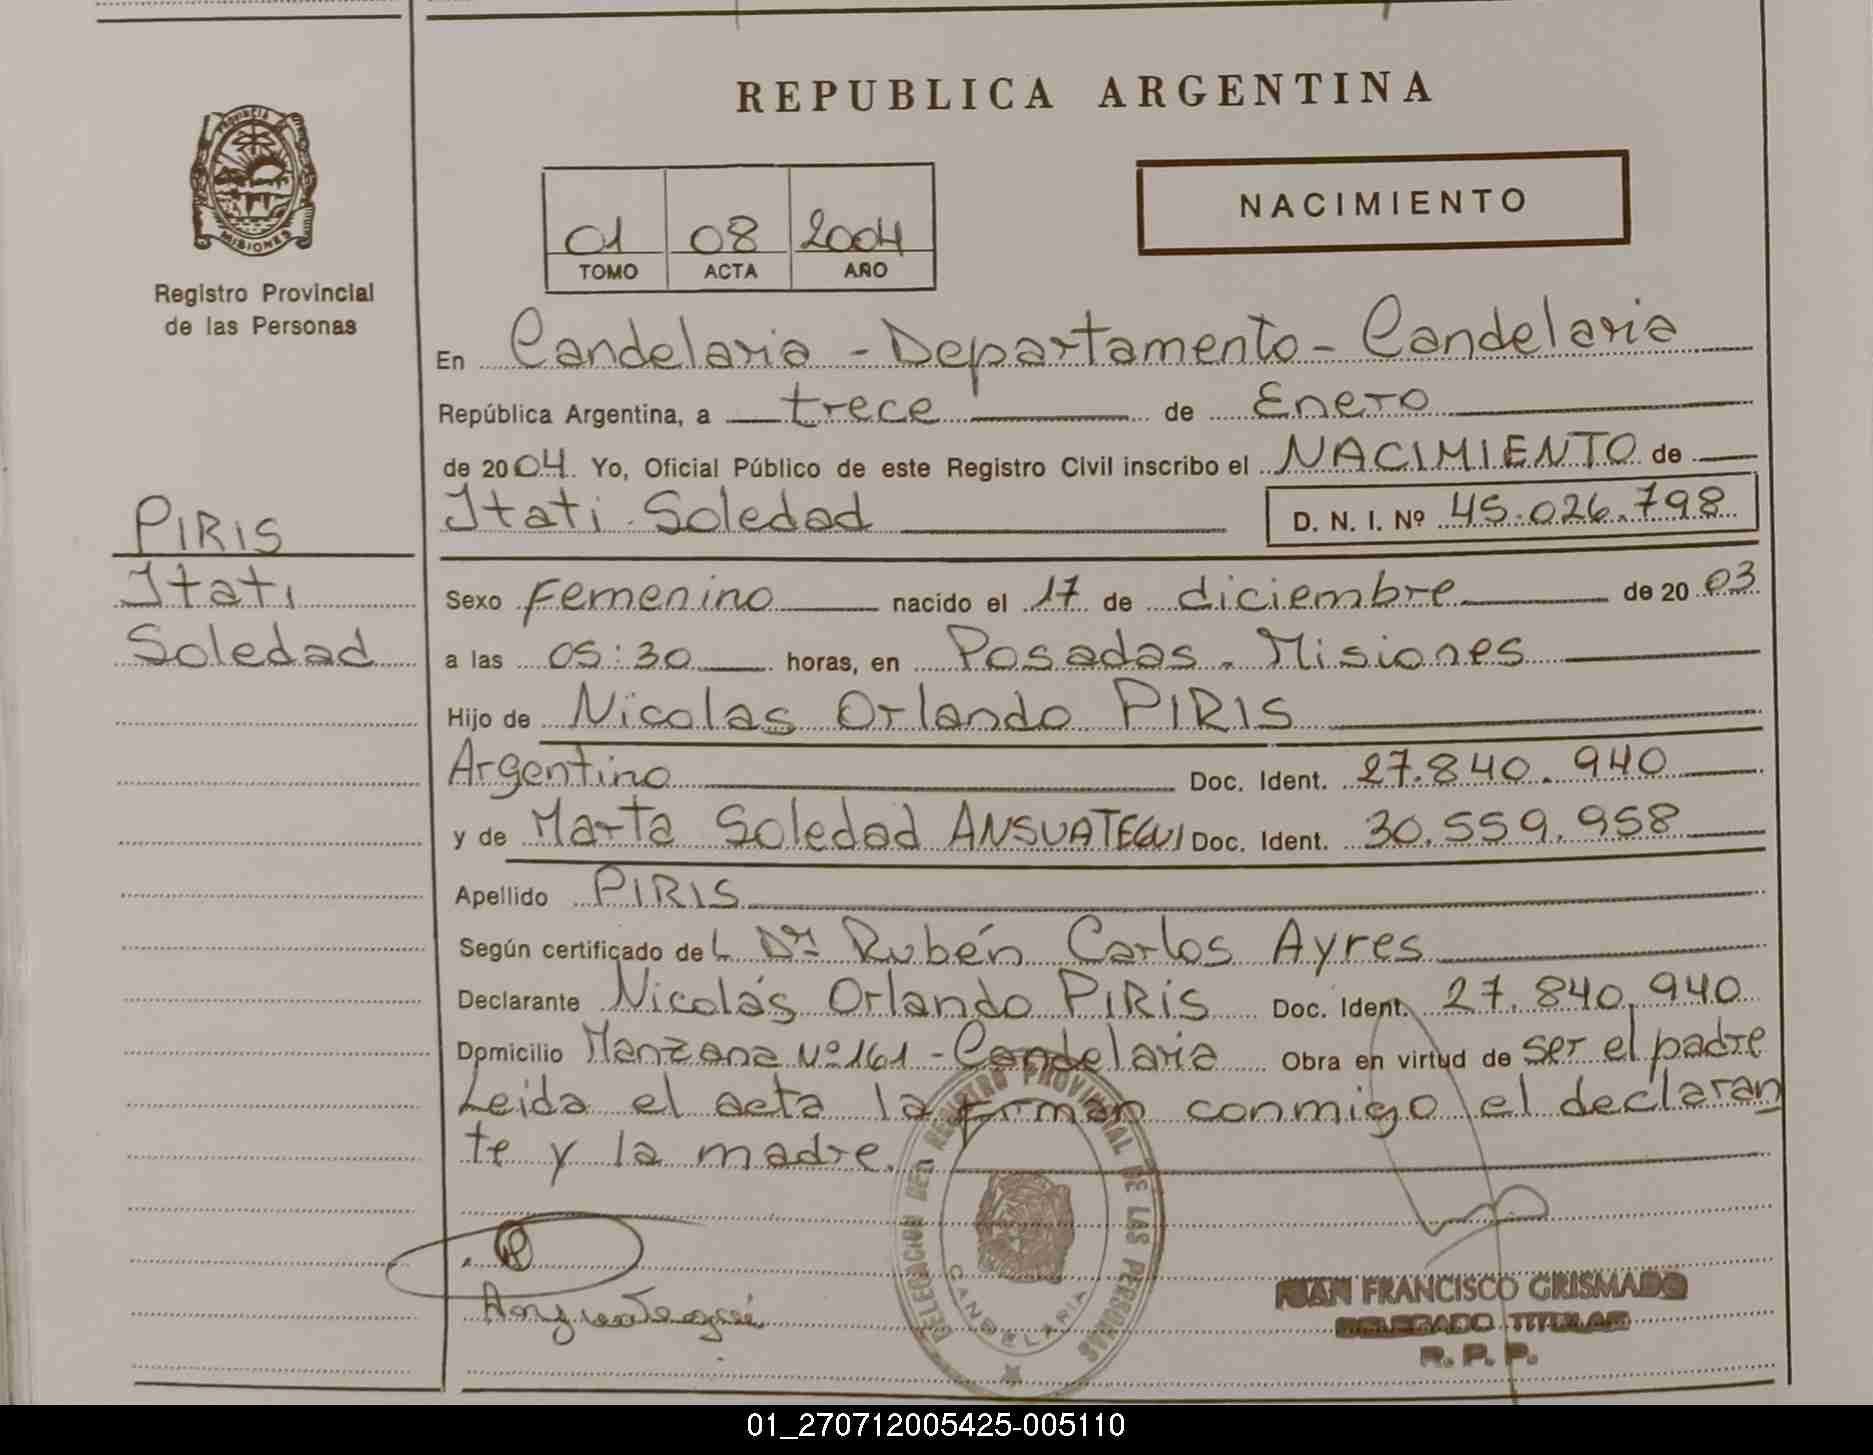 REPUBLICA ARGENTINA
PROVINCIA DE
MISIONES
Registro Provincial
de las Personas
01 08 2004
TOMO ACTA AÑO
NACIMIENTO
En Candelaria - Departamento - Candelaria
República Argentina, a trece de Enero
de 2004. Yo, Oficial Público de este Registro Civil inscribo el NACIMIENTO de
Itati Soledad D. N. I. Nº 45.026.798
PIRIS
Itati
Soledad
Sexo Femenino nacido el 17 de diciembre de 2003
a las 05:30 horas, en Posadas - Misiones
Hijo de Nicolas Orlando PIRIS
Argentino Doc. Ident. 27.840.940
y de Marta Soledad ANSUATEGUI Doc. Ident. 30.559.958
Apellido PIRIS
Según certificado del Dr. Rubén Carlos Ayres
Declarante Nicolás Orlando PIRIS Doc. Ident. 27.840.940
Domicilio Manzana Nº 161 - Candelaria Obra en virtud de ser el padre
Leida el acta la firman conmigo el declaran
te y la madre.
DELEGACION DEL REGISTRO PROVINCIAL DE LAS PERSONAS
CANDELARIA
JUAN FRANCISCO GRISMADO
DELEGADO TITULAR
R. P. P.
01_270712005425-005110